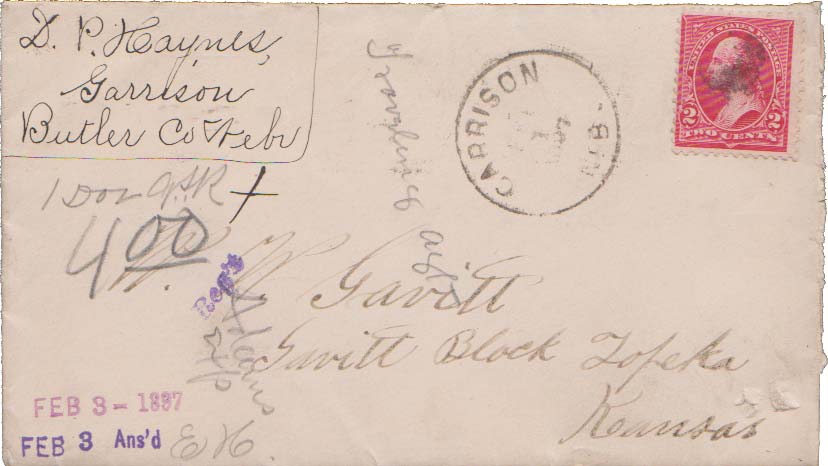 D. P. Haynes,
Garrison
Butler Co Nebr
GARRISON
UNITED STATES POSTAGE
2 2
TWO CENTS
1 Doz
400
W. W. Gavitt
Gavitt Block Topeka
Kansas
FEB 3 - 1897
FEB 3 Ans'd
E H.